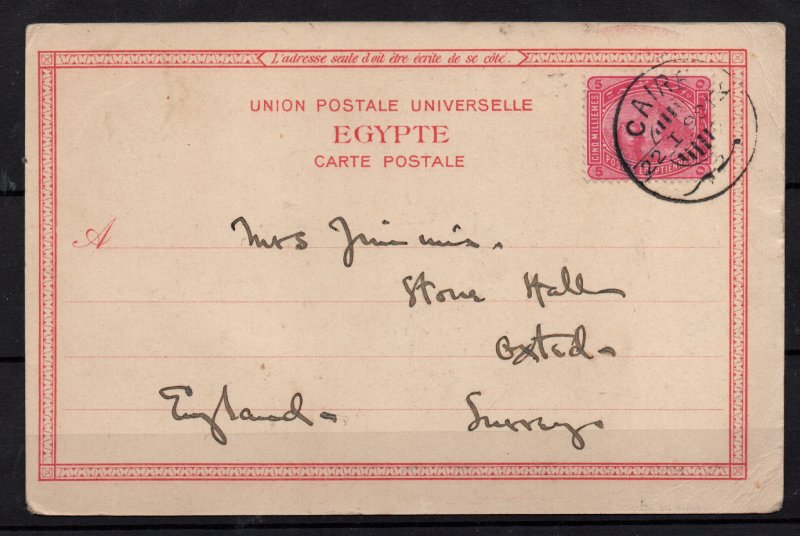 L'adresse seule doit être écrite de ce côté.
UNION POSTALE UNIVERSELLE
EGYPTE
CARTE POSTALE
CINQ MILLIEMES
5 5
CAIR
22 I
A
Mrs
Stone Hall
Oxted.
England. Surrey